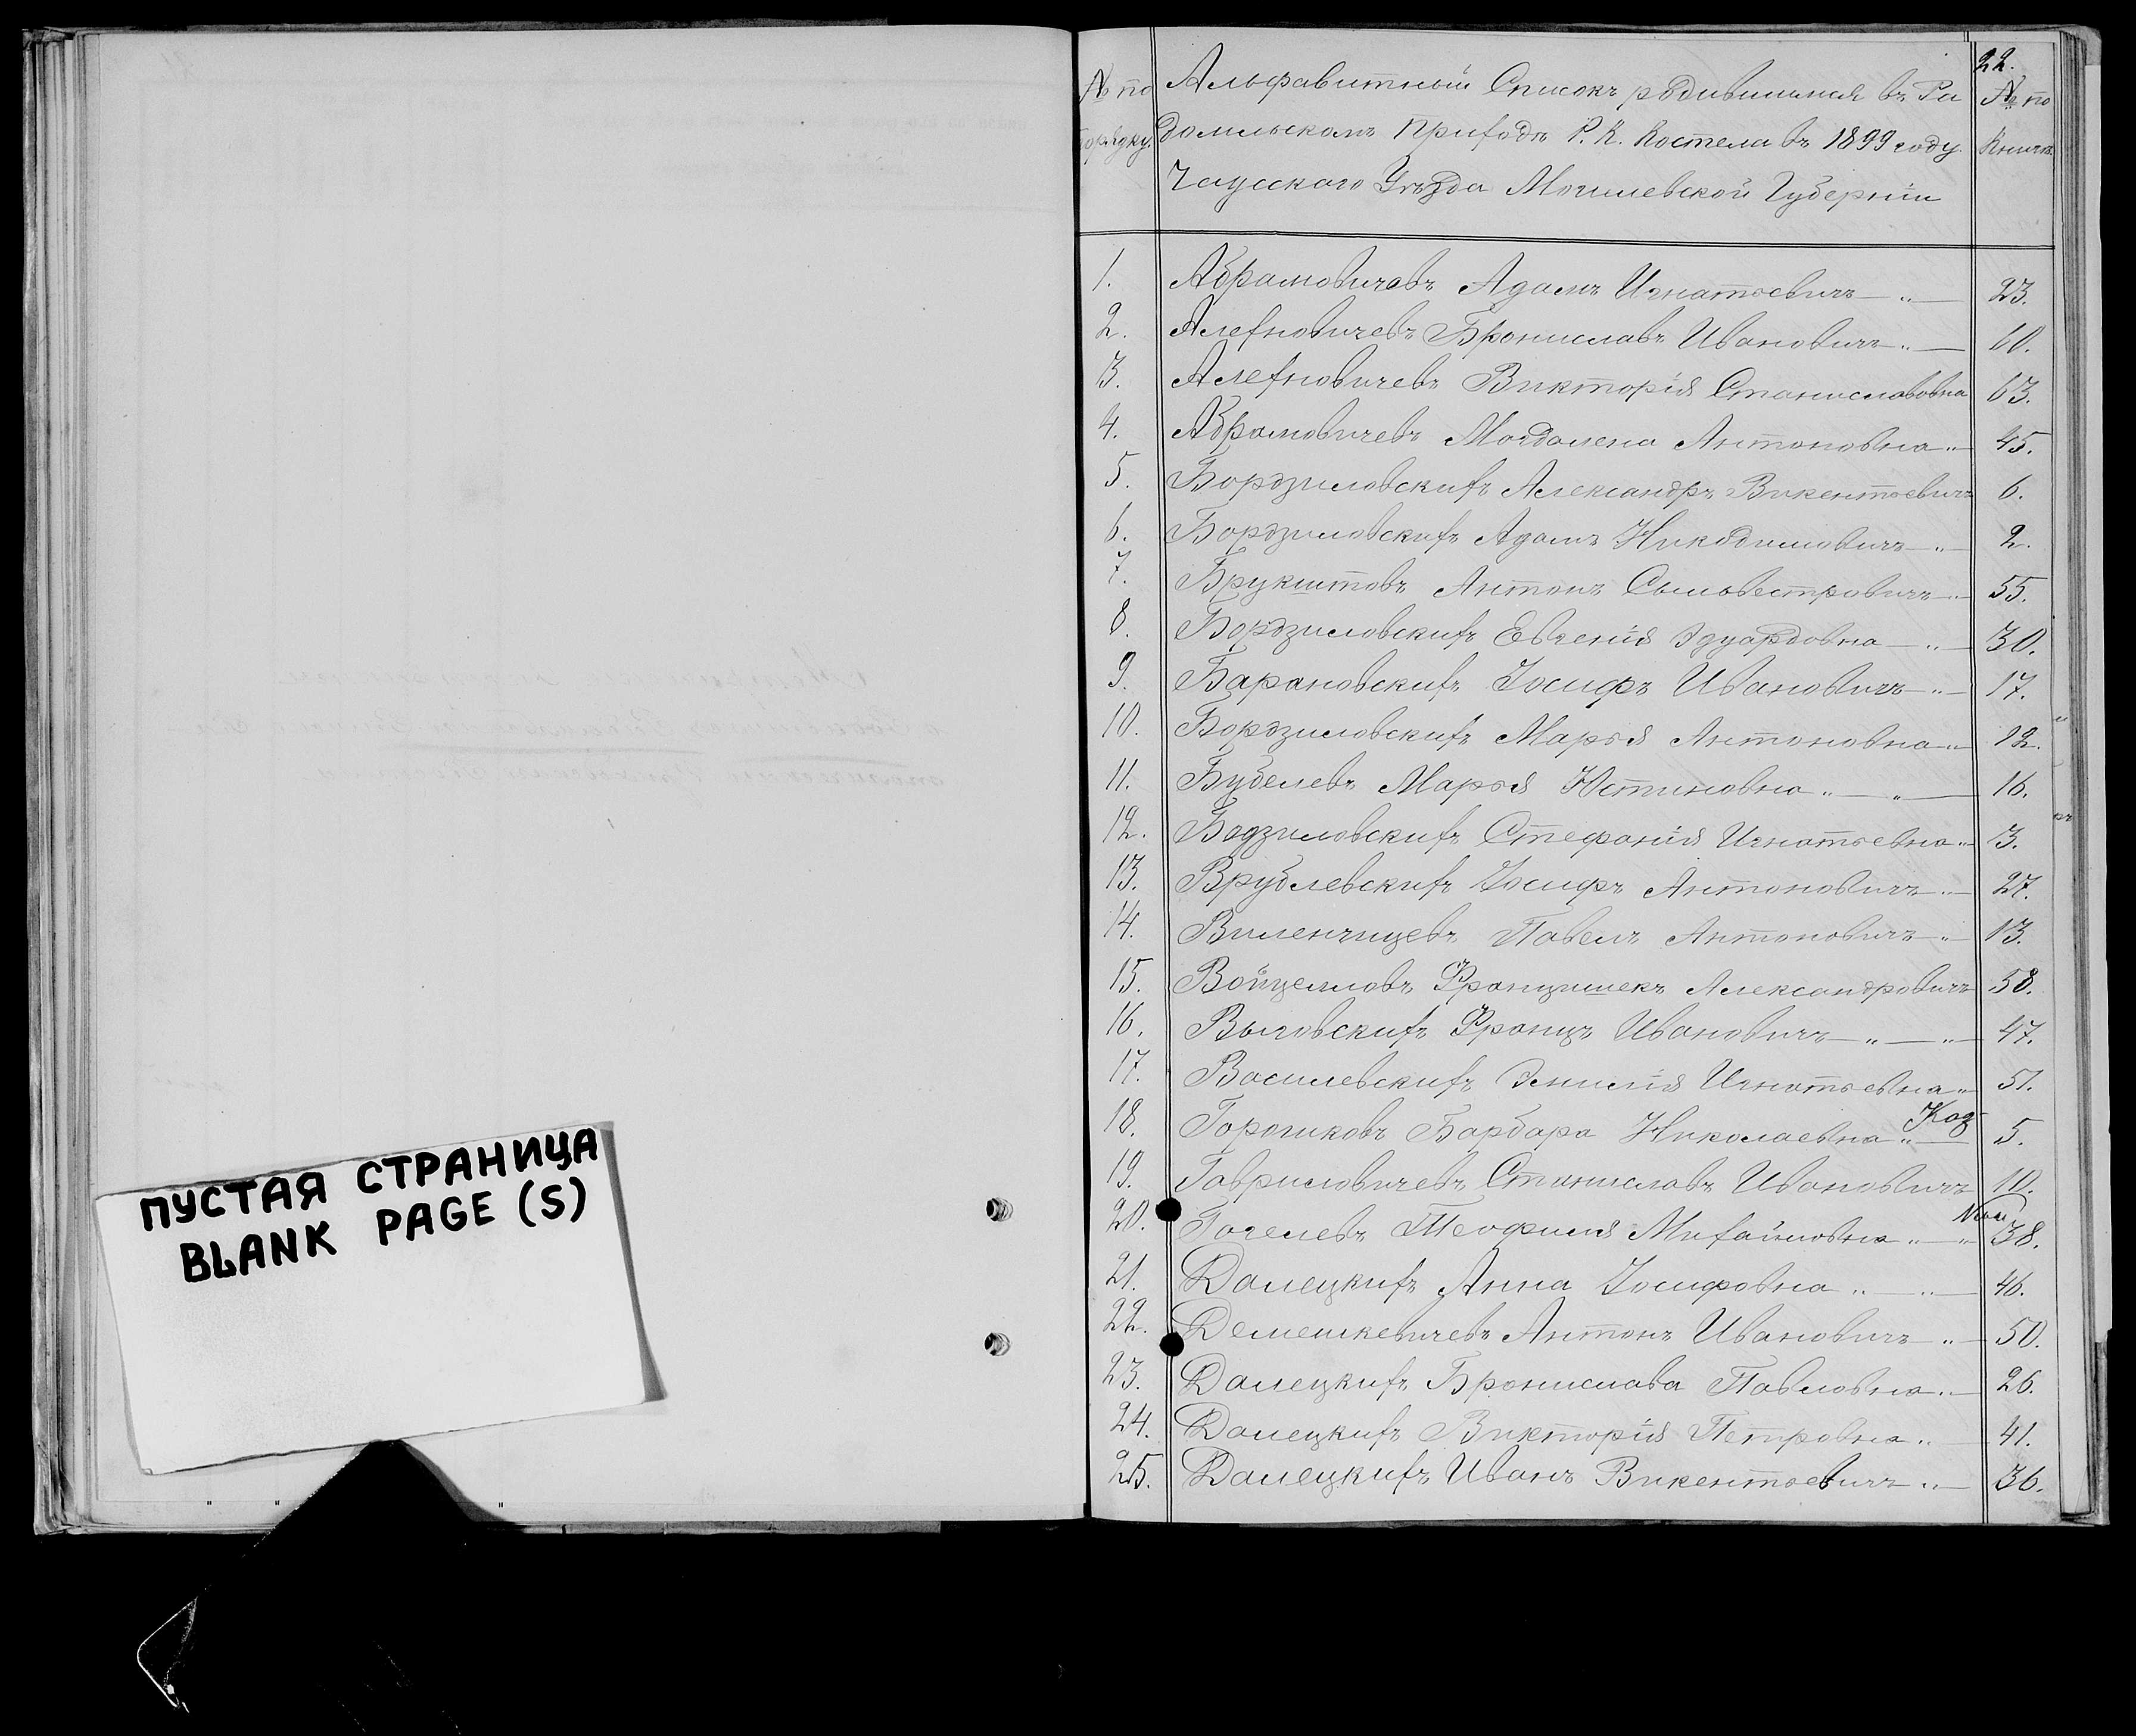 ПУСТАЯ СТРАНИЦА
BLANK PAGE (S)
22.
№ по порядку. Альфавитный Списокъ родившихся въ Ра № по
домльскомъ приходѣ Р. К. Костела въ 1899 году Книгѣ
Чаусскаго Уѣзда Могилевской Губерніи
1. Абрамовичевъ Адамъ Игнатьевичъ — „ — 23.
2. Алехновичевъ Брониславъ Ивановичъ „ — 60.
3. Алехновичевъ Викторія Станиславовна 63.
4. Абрамовичевъ Магдалена Антоновна „ — 45.
5. Бордзиловскихъ Александръ Викентьевичъ 6.
6. Бордзиловскихъ Адамъ Никодимовичъ — „ — 2.
7. Брукштовъ Антонъ Сыльвестровичъ — „ — 55.
8. Бордзиловскихъ Евгенія Эдуардовна — „ — 30.
9. Барановскихъ Іосифъ Ивановичъ „ — 17.
10. Бордзиловскихъ Марья Антоновна „ — 12.
11. Бубелевъ Марья Юстиновна „ — „ — 16.
12. Бодзиловскихъ Стефанія Игнатьевна „ — 3.
13. Врублевскихъ Іосифъ Антоновичъ „ — 27.
14. Виленчицевъ Павелъ Антоновичъ „ — 13.
15. Войцелловъ Францишекъ Александровичъ 58.
16. Выговскихъ Францъ Ивановичъ — „ — „ — 47.
17. Василевскихъ Эмилія Игнатьевна „ — 51.
18. Горошковъ Барбара Николаевна „ — Коз 5.
19. Гавриловичевъ Станиславъ Ивановичъ 10.
20. Гогелевъ Теофилія Михайловна „ — „ 38.
21. Далецкихъ Анна Іосифовна „ — „ — 46.
22. Демешкевичевъ Антонъ Ивановичъ „ — 50.
23. Далецкихъ Бронислава Павловна „ — 26.
24. Далецкихъ Викторія Петровна „ — 41.
25. Далецкихъ Иванъ Викентьевичъ „ — 36.